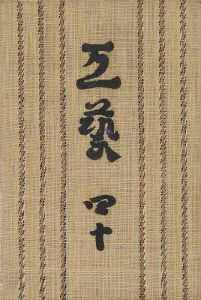 工藝
四十